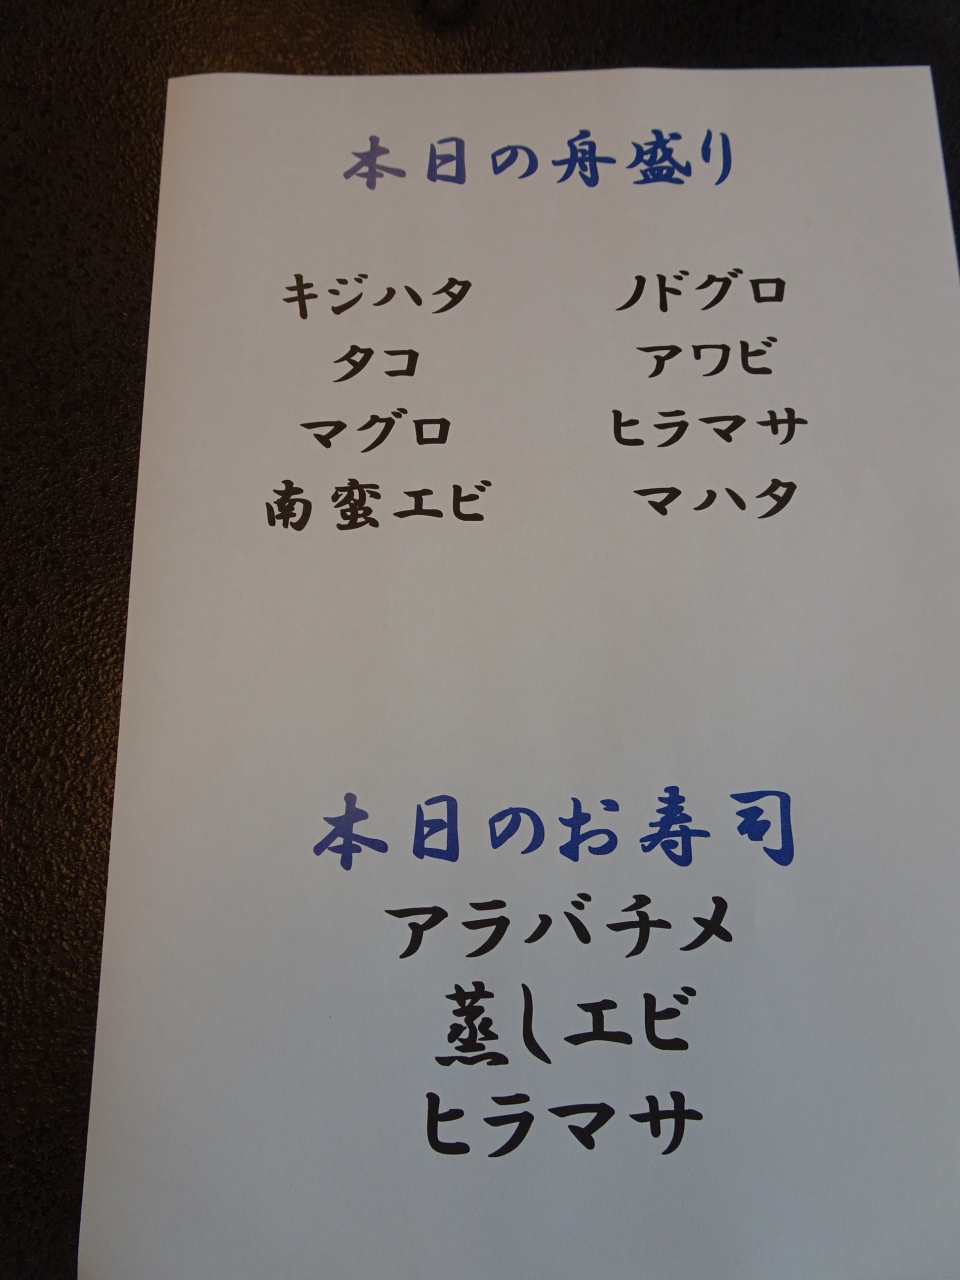 本日の舟盛り
キジハタ ノドグロ
タコ アワビ
マグロ ヒラマサ
南蛮エビ マハタ
本日のお寿司
アラバチメ
蒸しエビ
ヒラマサ